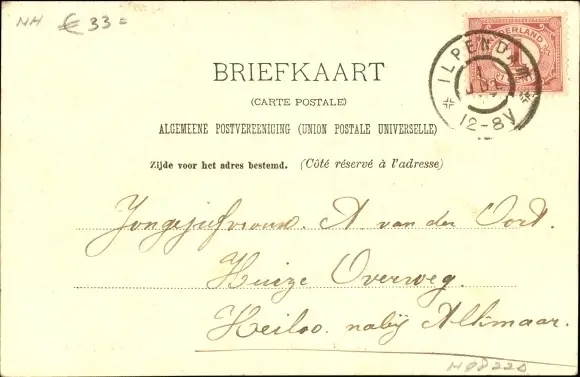 NH € 33=
NEDERLAND
ILPENDAM
12-8V
BRIEFKAART
(CARTE POSTALE)
ALGEMEENE POSTVEREENIGING (UNION POSTALE UNIVERSELLE)
Zijde voor het adres bestemd. (Côté réservé à l'adresse)
Jongejufvrouw. A van der Oort.
Huize Overweg.
Heiloo. nabij Alkmaar.
H08220